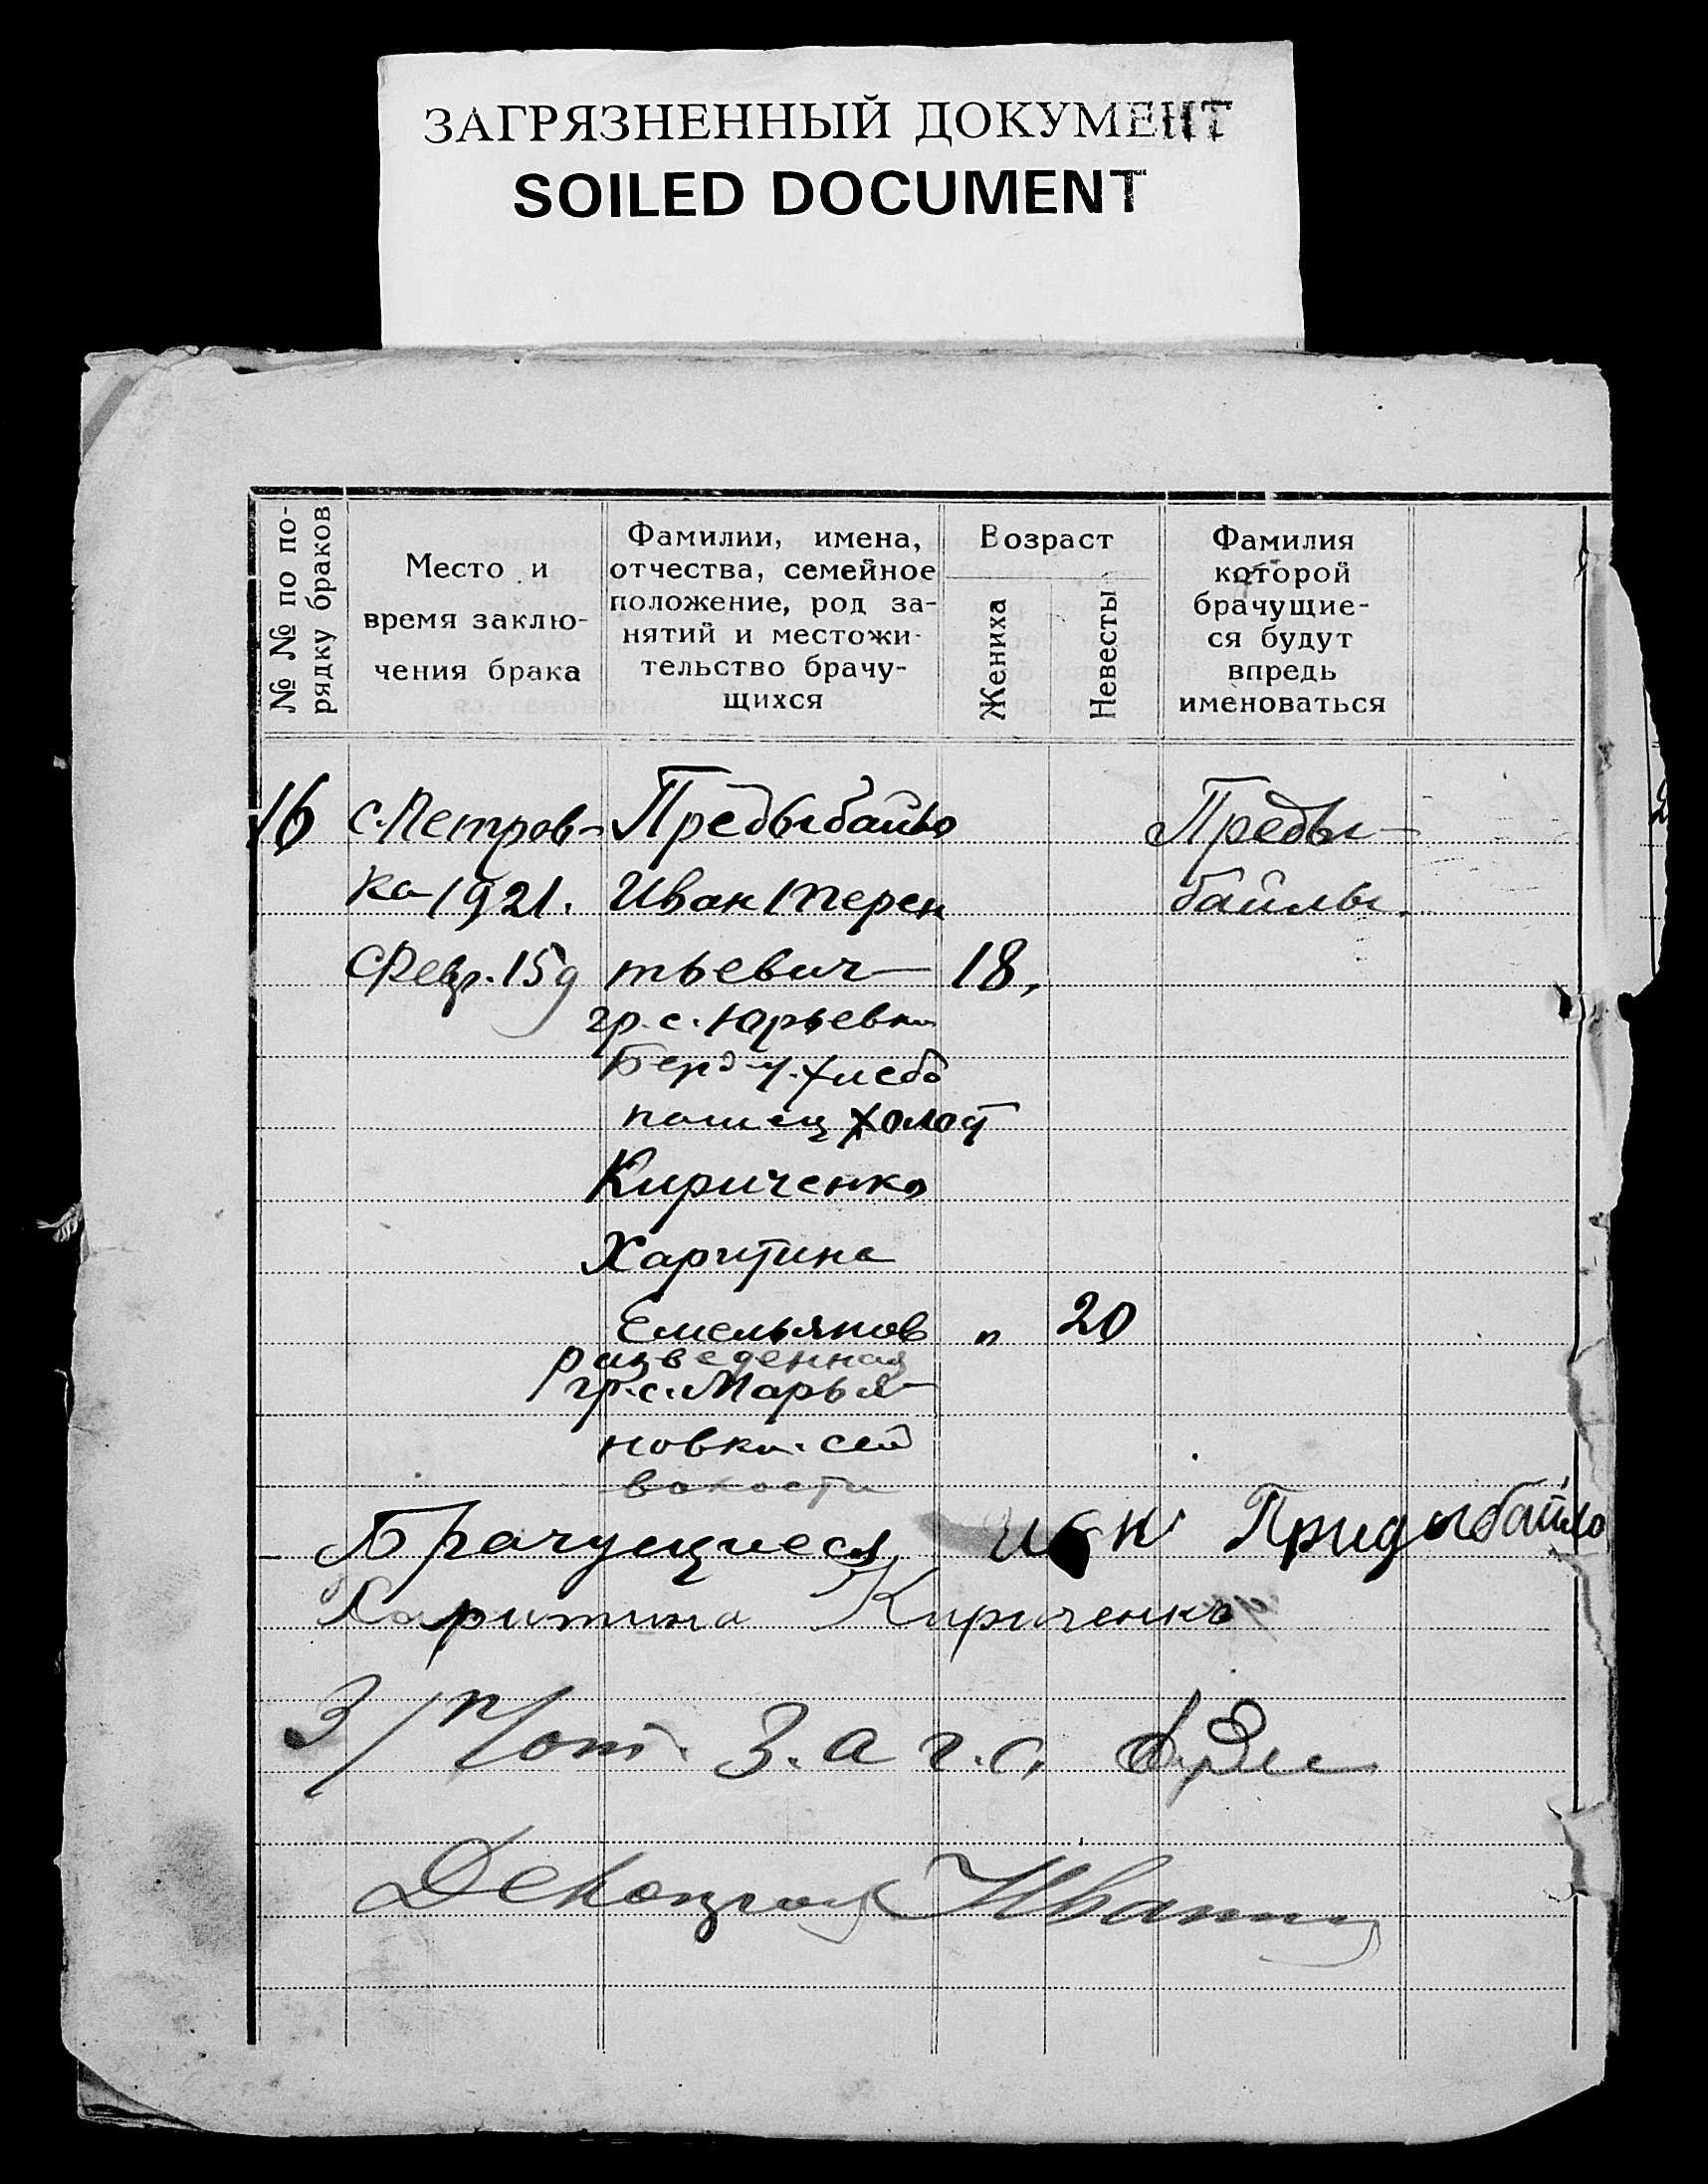 ЗАГРЯЗНЕННЫЙ ДОКУМЕНТ
SOILED DOCUMENT
№ № по по-
рядку браков
Место и
время заклю-
чения брака
Фамилии, имена,
отчества, семейное
положение, род за-
нятий и местожи-
тельство брачу-
щихся
Возраст
Жениха
Невесты
Фамилия
которой
брачущие-
ся будут
впредь
именоваться
16 с. Петров- Предыбайло Преды-
ка 1921. Иван Терен байлы.
Февр. 15 д тьевич 18,
гр. с. Юрьевки
Берд. у. хлебо
пашец холост
Кириченко
Харитина
Емельянов „ 20
разведенная
гр. с. Марья-
новки. сей
волости
Брачущиеся, Придыбайло
Харитина Кириченко
З/п/от. З.а г.с.